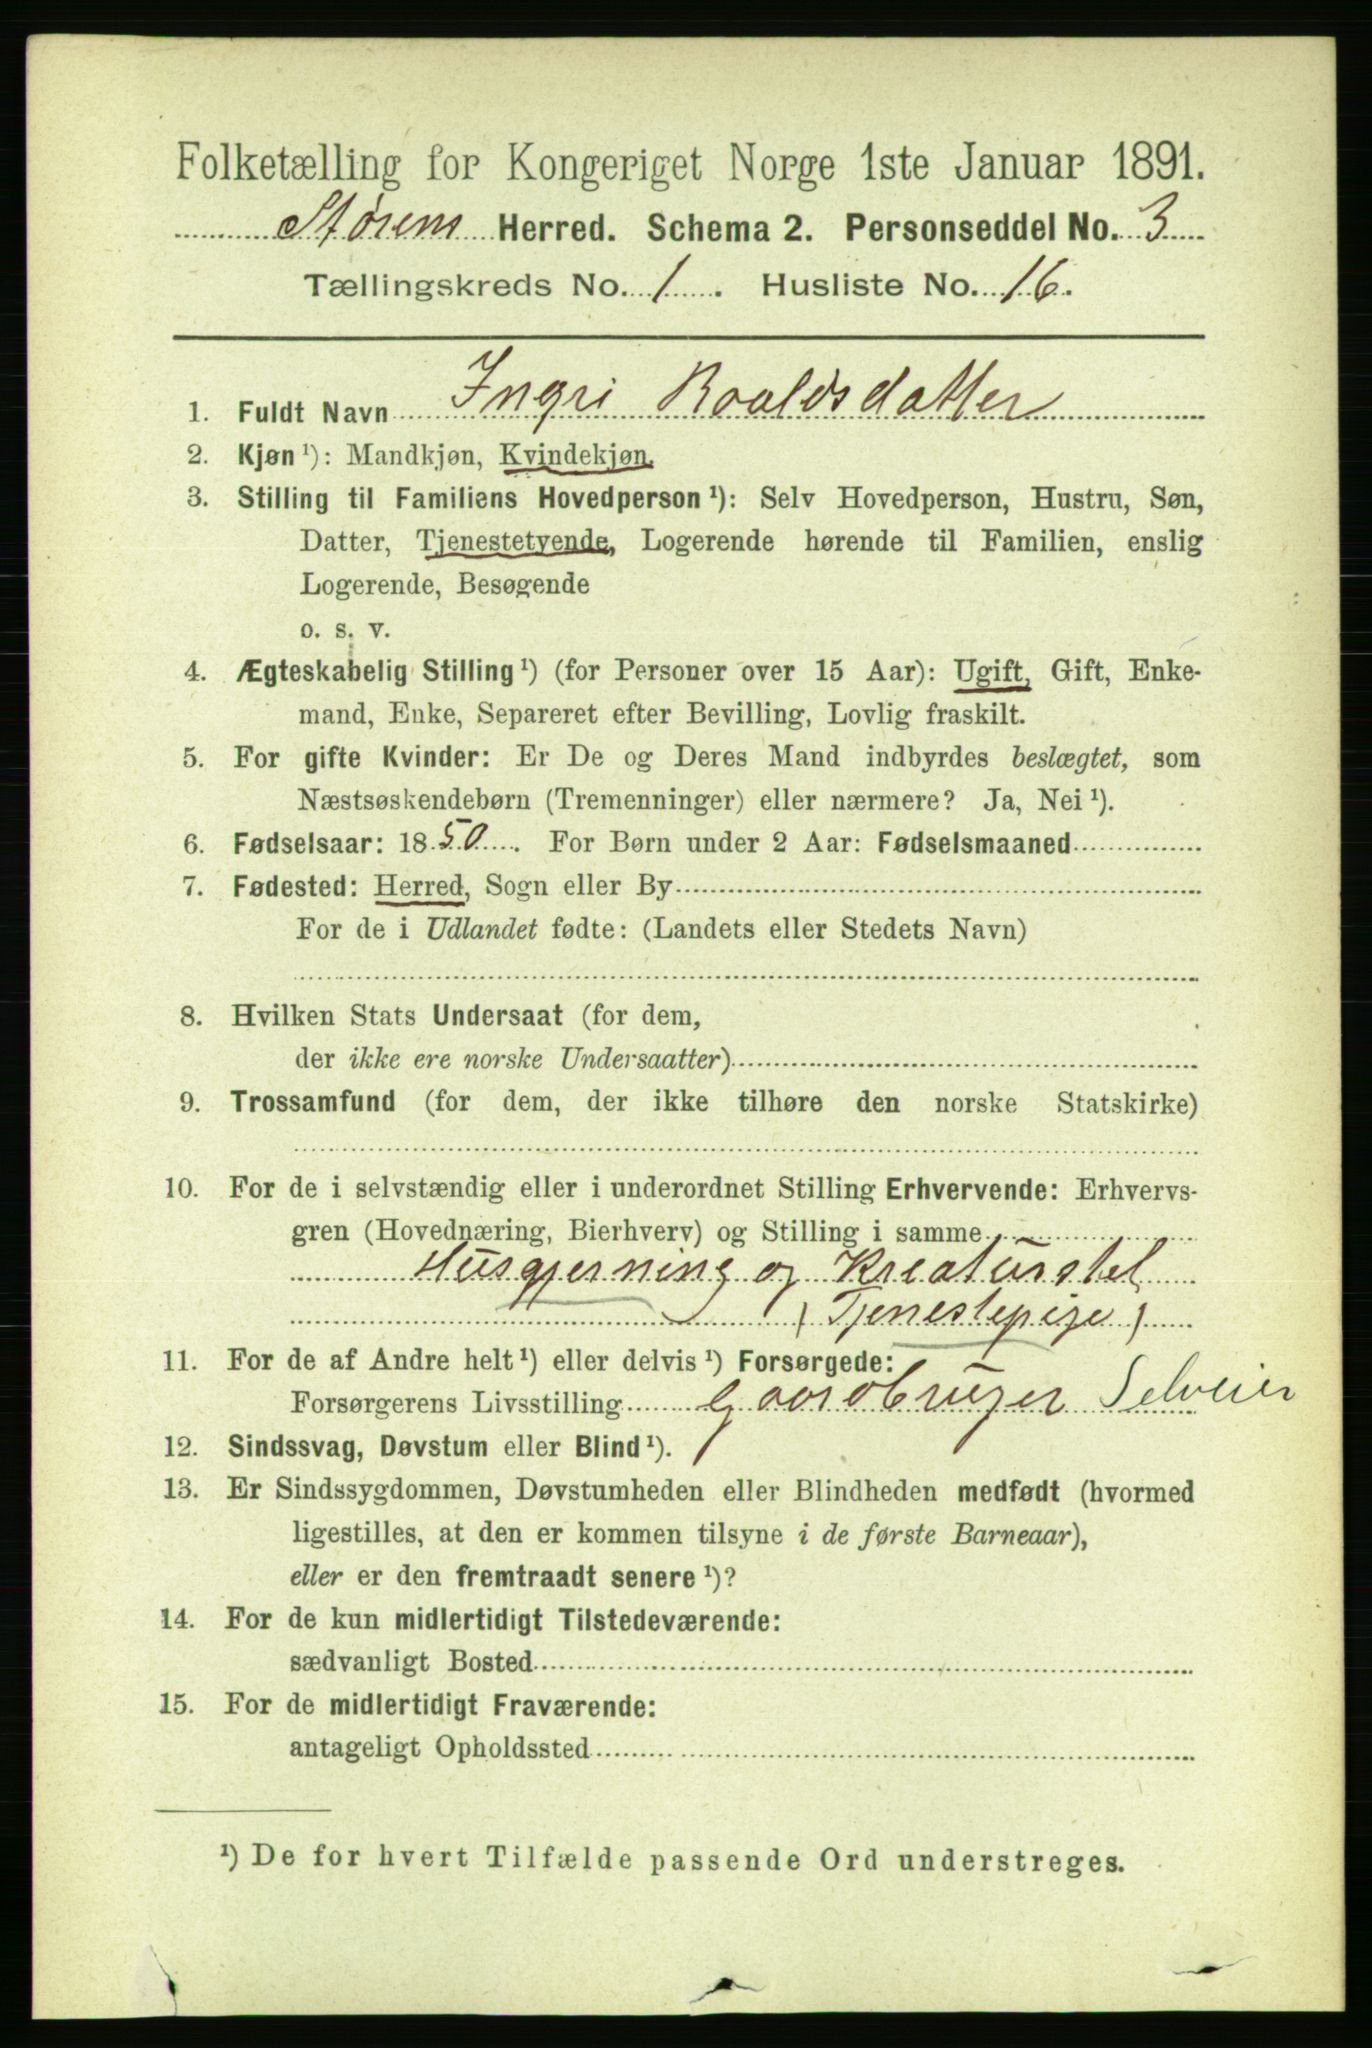 Folketælling for Kongeriget Norge 1ste Januar 1891.
Størens Herred. Schema 2. Personseddel No. 3
Tællingskreds No. 1. Husliste No. 16.
1. Fuldt Navn Ingri Roaldsdatter
2. Kjøn ¹): Mandkjøn, Kvindekjøn.
3. Stilling til Familiens Hovedperson ¹): Selv Hovedperson, Hustru, Søn,
Datter, Tjenestetyende, Logerende hørende til Familien, enslig
Logerende, Besøgende
o. s. v.
4. Ægteskabelig Stilling ¹) (for Personer over 15 Aar): Ugift, Gift, Enke-
mand, Enke, Separeret efter Bevilling, Lovlig fraskilt.
5. For gifte Kvinder: Er De og Deres Mand indbyrdes beslægtet, som
Næstsøskendebørn (Tremenninger) eller nærmere? Ja, Nei ¹).
6. Fødselsaar: 1850. For Børn under 2 Aar: Fødselsmaaned
7. Fødested: Herred, Sogn eller By
For de i Udlandet fødte: (Landets eller Stedets Navn)
8. Hvilken Stats Undersaat (for dem,
der ikke ere norske Undersaatter)
9. Trossamfund (for dem, der ikke tilhøre den norske Statskirke)
10. For de i selvstændig eller i underordnet Stilling Erhvervende: Erhvervs-
gren (Hovednæring, Bierhverv) og Stilling i samme
Husgjerning og Kreaturstel
(Tjenestepige)
11. For de af Andre helt ¹) eller delvis ¹) Forsørgede:
Forsørgerens Livsstilling Gaardbruger Selveier
12. Sindssvag, Døvstum eller Blind ¹).
13. Er Sindssygdommen, Døvstumheden eller Blindheden medfødt (hvormed
ligestilles, at den er kommen tilsyne i de første Barneaar),
eller er den fremtraadt senere ¹)?
14. For de kun midlertidigt Tilstedeværende:
sædvanligt Bosted
15. For de midlertidigt Fraværende:
antageligt Opholdssted
¹) De for hvert Tilfælde passende Ord understreges.